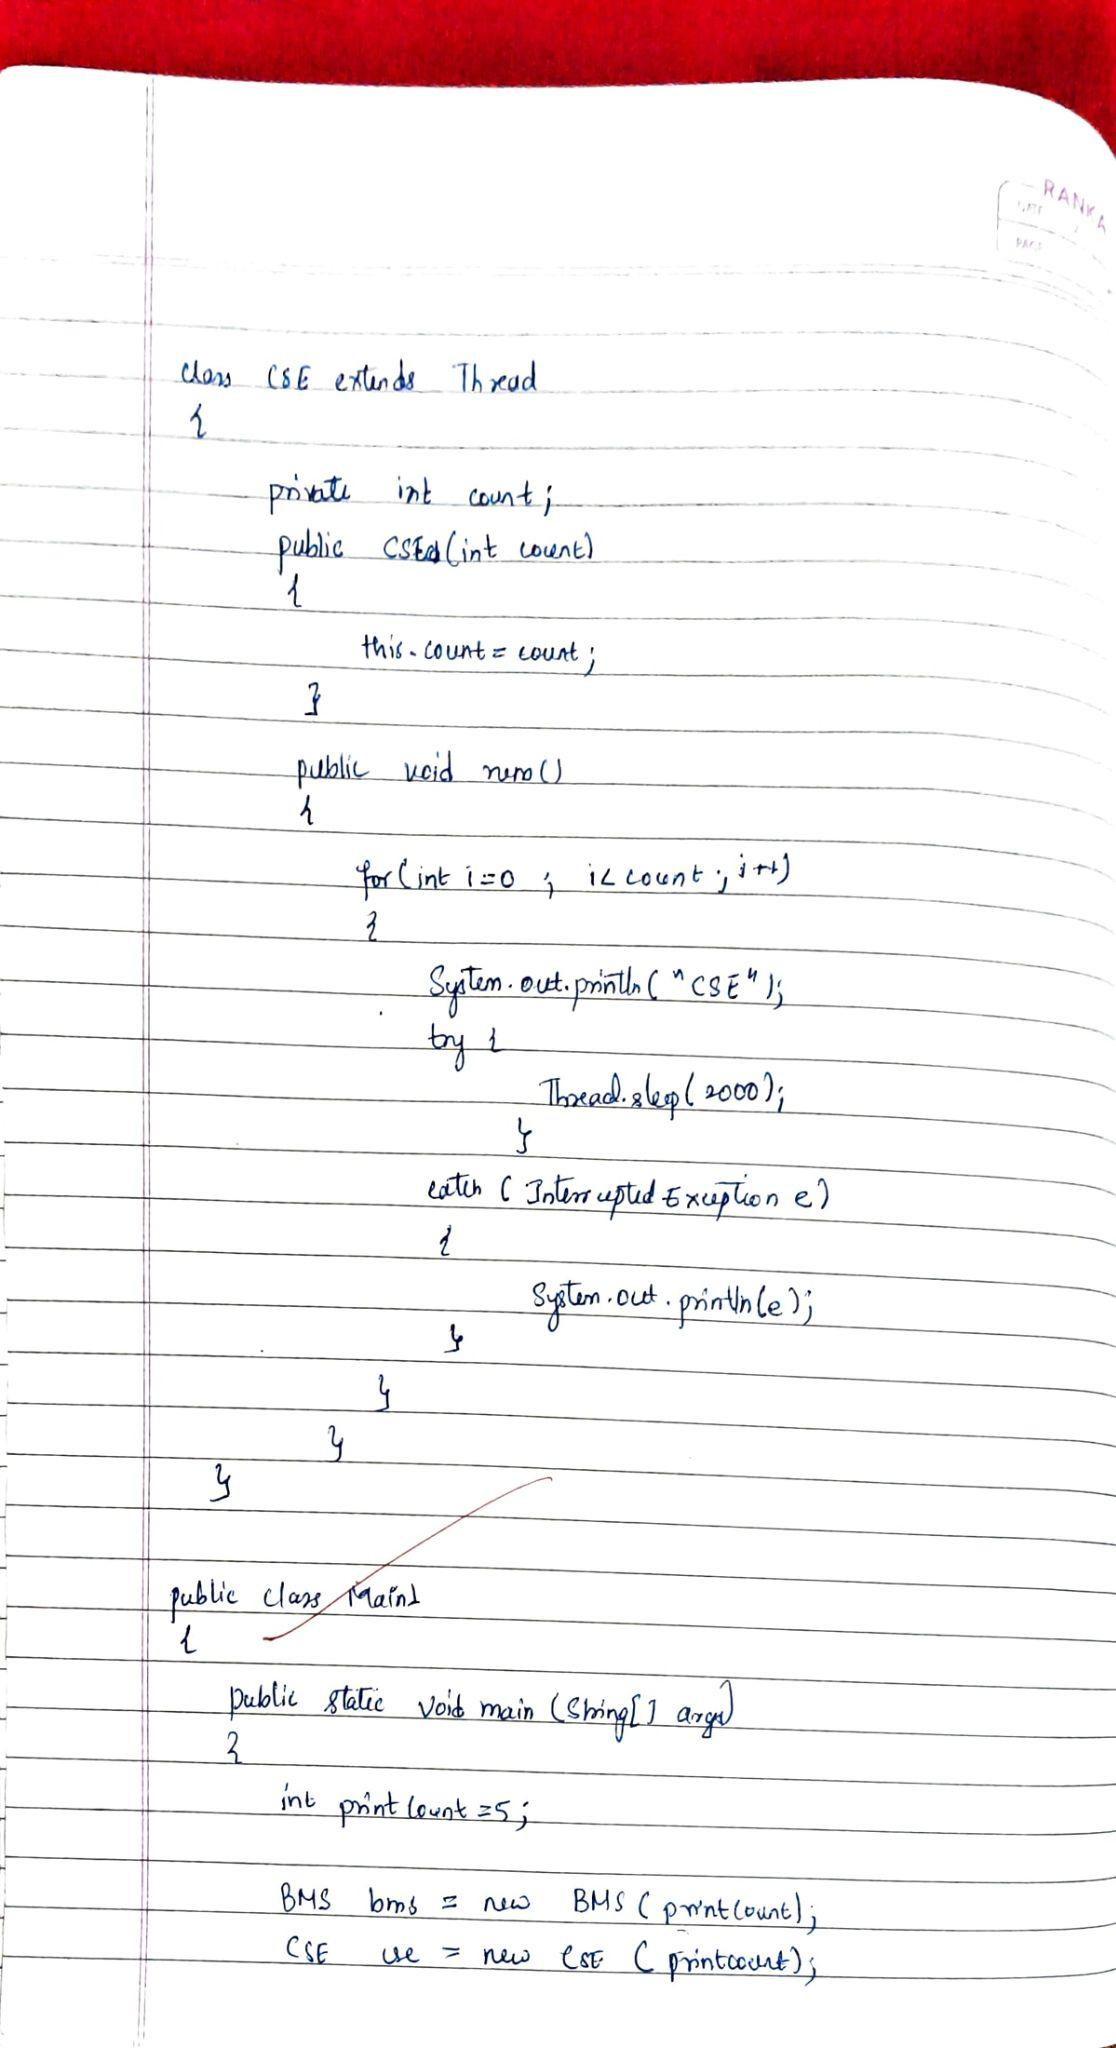 RANKA
DATE
PAGE
class CSE extends Thread
{
private int count;
public CSE(int count)
{
this.count = count;
}
public void run()
{
for(int i=0 ; i< count ; i++)
{
System.out.println("CSE");
try {
Thread.sleep(2000);
}
catch (InterruptedException e)
{
System.out.println(e);
}
}
}
}
public class Main1
{
public static void main (String[] args)
{
int printCount =5;
BMS bms = new BMS (printCount);
CSE cse = new CSE (printcount);